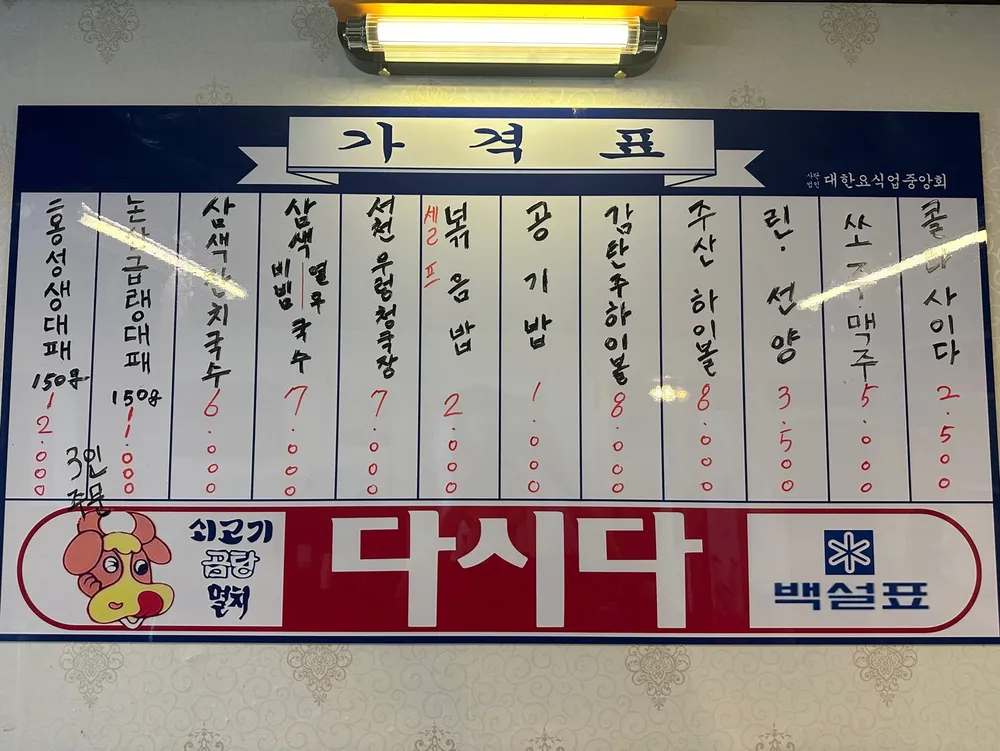 가격표
사단법인 대한요식업중앙회
홍성생대패 150g 12.000
급탱대패 150g 11.000
3인 주문
삼색 치국수 6.000
삼색 비빔 열무 국수 7.000
서천 우렁청국장 7.000
셀프 볶음밥 2.000
공기밥 1.000
감탄주하이볼 8.000
주산 하이볼 8.000
린. 선양 3.500
쏘주맥주 5.000
콜라사이다 2.500
쇠고기
곰탕
멸치
다시다
백설표